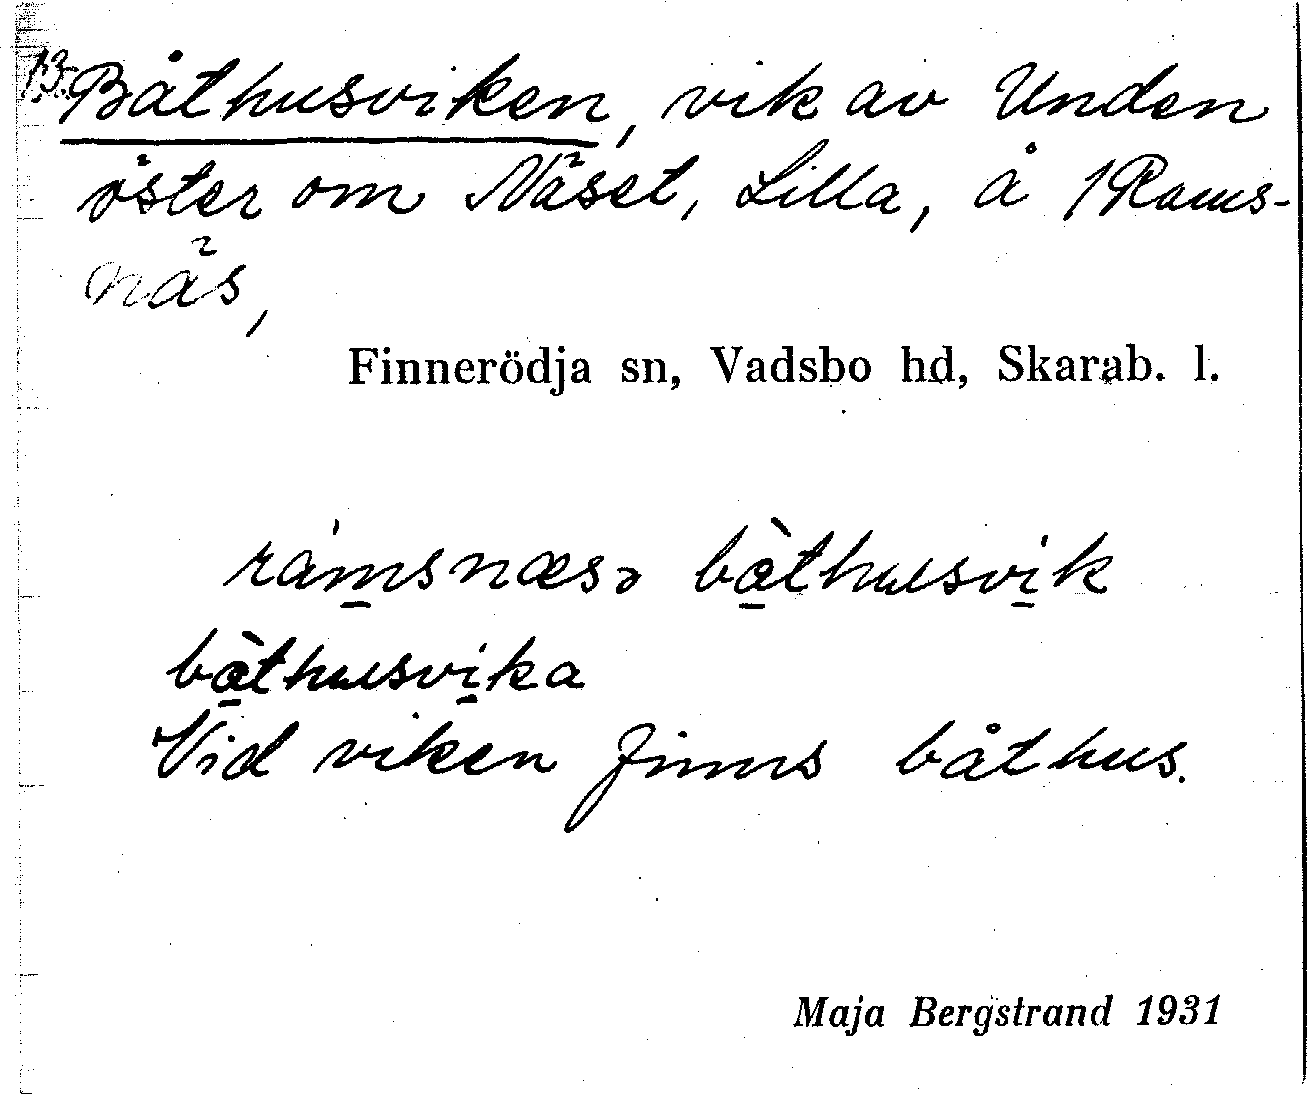 13. Båthusviken, vik av Unden
öster om Näset, Lilla, å 1 Rams-
näs,
Finnerödja sn, Vadsbo hd, Skarab. l.
rámsnæsə bàthusvik
bàthusvika
Vid viken finns båthus.
Maja Bergstrand 1931